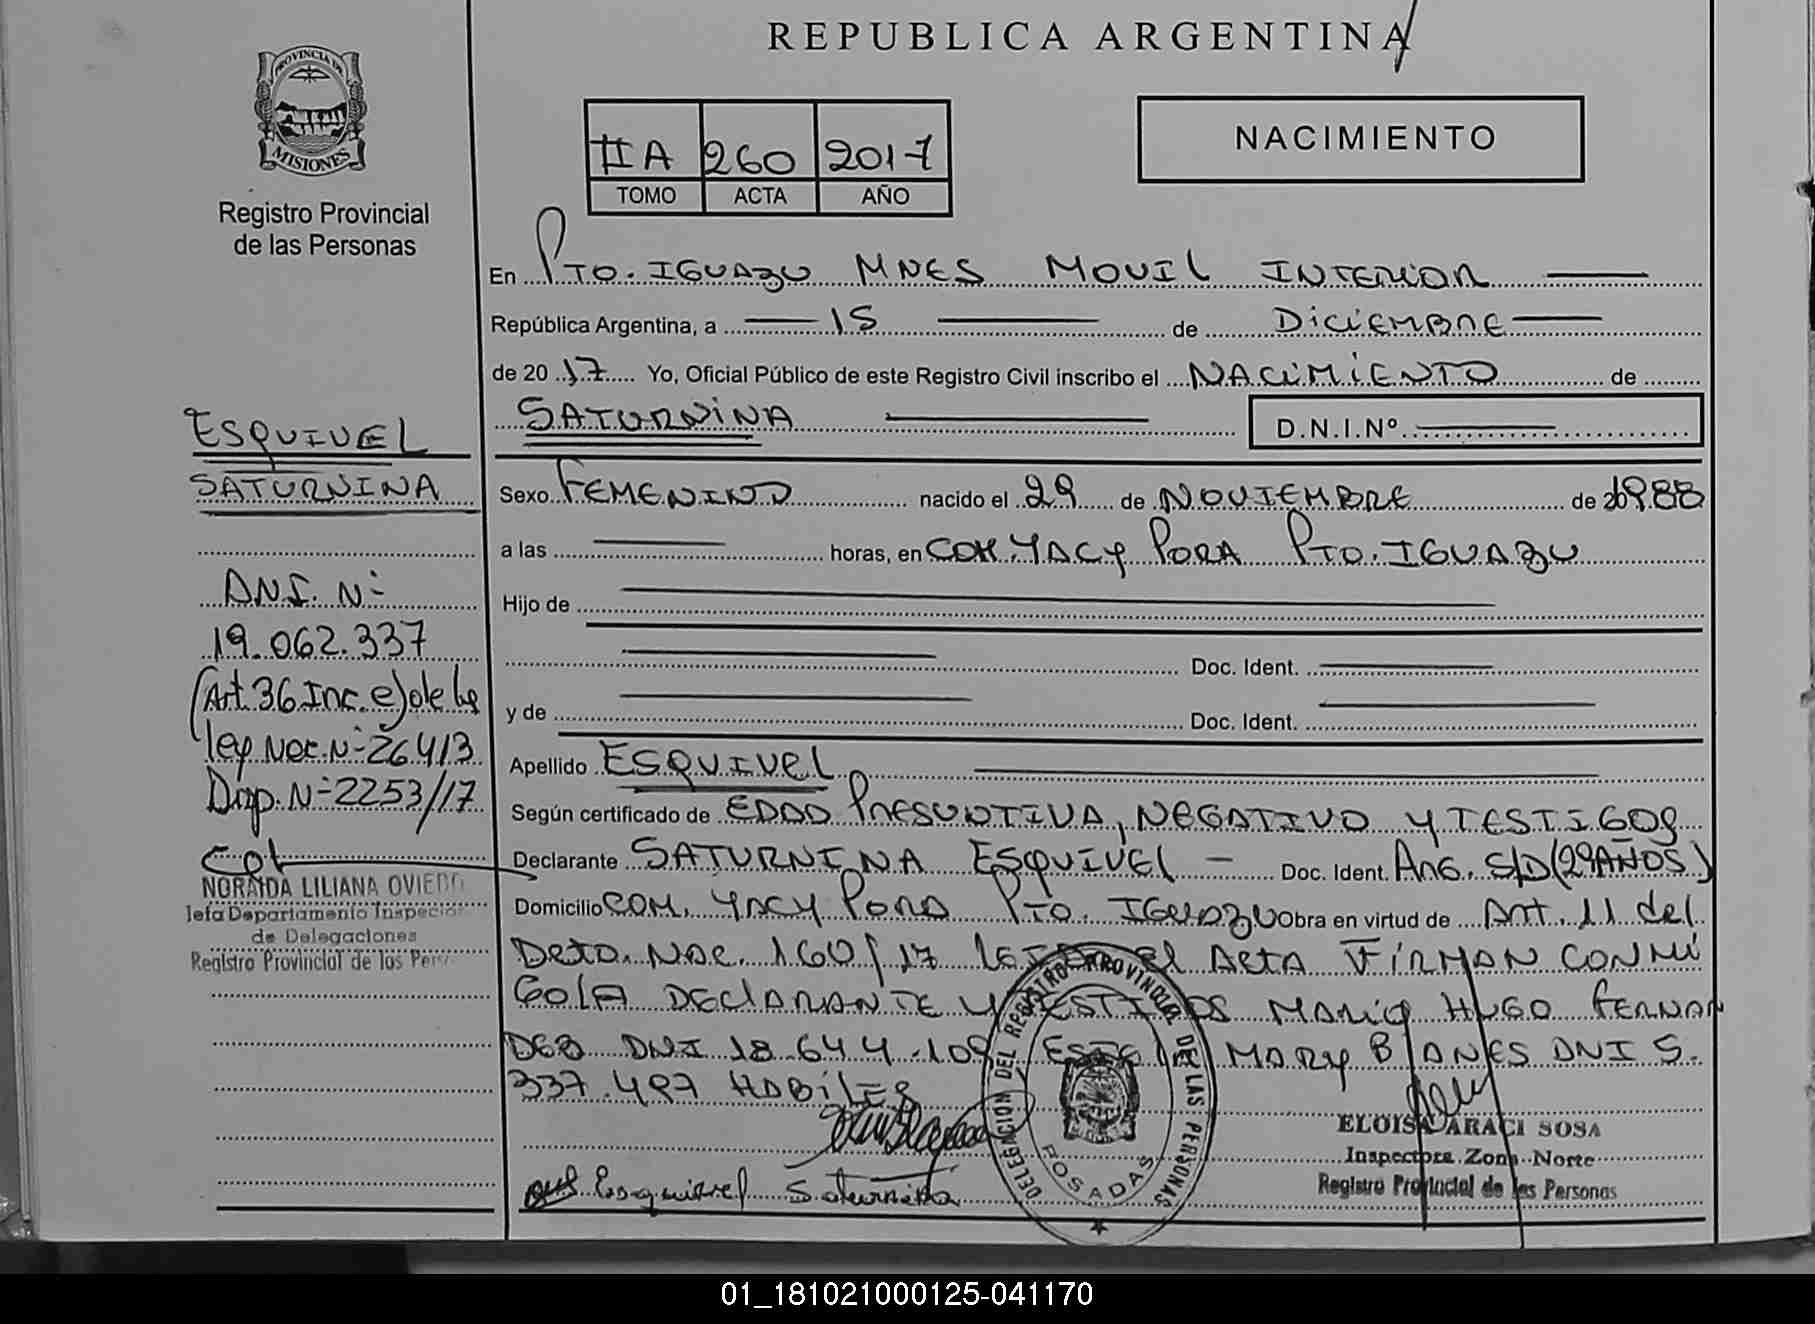 REPUBLICA ARGENTINA
PROVINCIA DE
MISIONES
Registro Provincial
de las Personas
IIA 260 2017
TOMO ACTA AÑO
NACIMIENTO
En PTO. IGUAZU MNES MOVIL INTERIOR
República Argentina, a 15 de DICIEMBRE
de 20 17 Yo, Oficial Público de este Registro Civil inscribo el NACIMIENTO de
SATURNINA D.N.I.Nº
ESQUIVEL
SATURNINA
D.N.I. Nº
19.062.337
(Art. 36 Inc. e) de la
ley Nac. Nº 26413
Disp. Nº 2253/17
NORAIDA LILIANA OVIEDO
Jefa Departamento Inspección
de Delegaciones
Registro Provincial de las Pers
Sexo FEMENINO nacido el 29 de NOVIEMBRE de 1988
a las horas, en COM. YACY PORA PTO. IGUAZU
Hijo de
Doc. Ident.
y de Doc. Ident.
Apellido ESQUIVEL
Según certificado de EDAD PRESUNTIVA, NEGATIVO Y TESTIGOS
Declarante SATURNINA ESQUIVEL Doc. Ident. ARG. S/D (29 AÑOS)
Domicilio COM. YACY PORA PTO. IGUAZU Obra en virtud de ART. 11 del
Dcto. NAC. 160/17 LEIDA el ACTA FIRMAN CON MI
GO LA DECLARANTE Y TESTIGOS MARIO HUGO FERNAN
DEZ DNI 18.644.109 MARY B DNI 5.
337.497 HABILES
Esquivel Saturnina
DELEGACION DEL REGISTRO PROVINCIAL DE LAS PERSONAS
POSADAS
ELOISA ARACI SOSA
Inspectora Zona Norte
Registro Provincial de las Personas
01_181021000125-041170